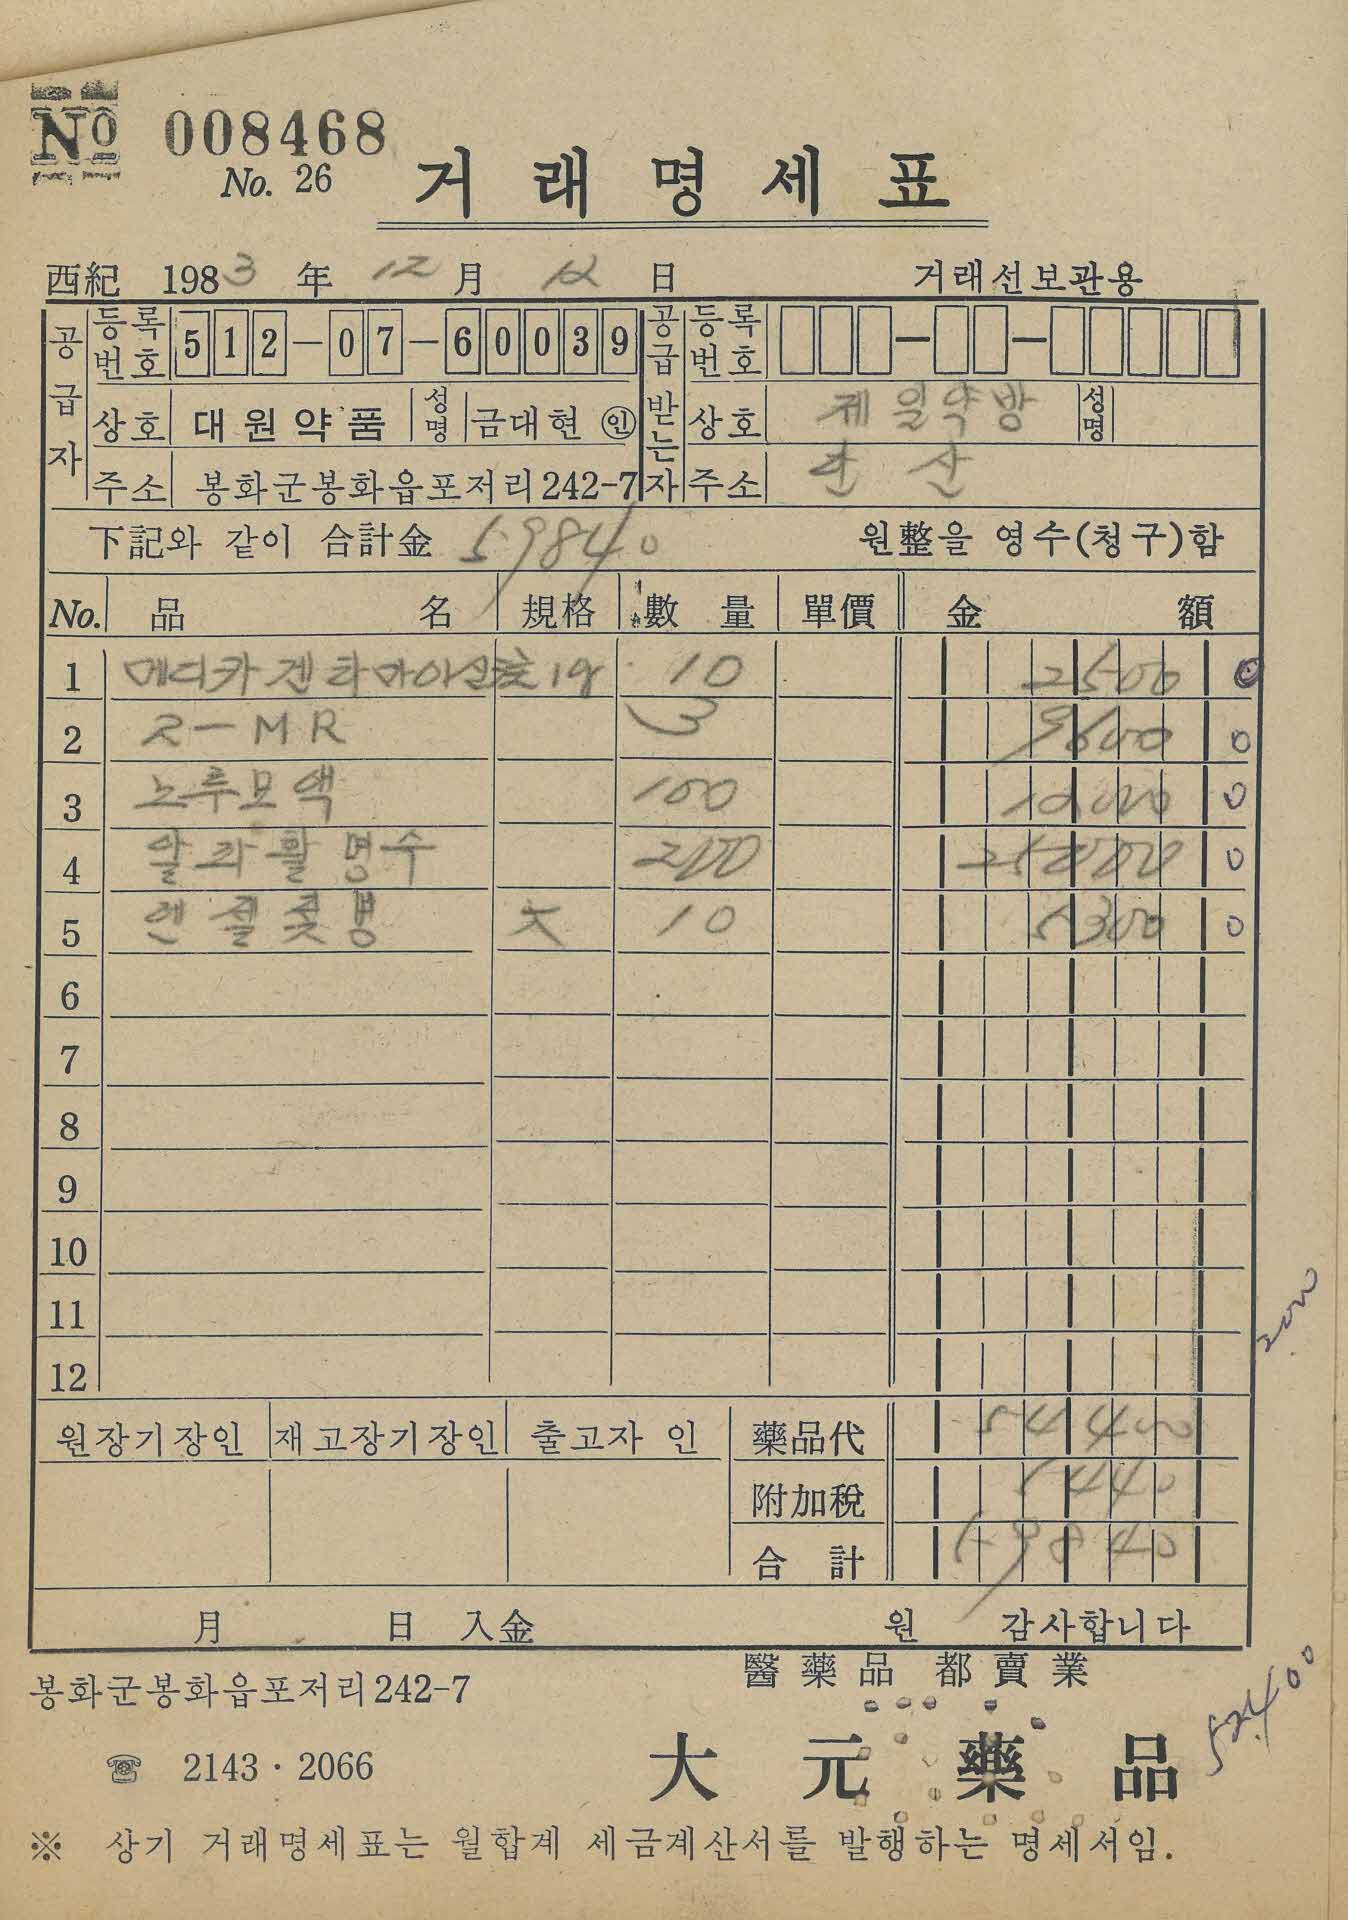 No 008468
No. 26
거래명세표
西紀 1983 年 12 月 12 日 거래선보관용
공급자 등록번호 512-07-60039 공급받는자 등록번호
상호 대원약품 성명 금대현 ㊞ 상호 제일약방 성명
주소 봉화군봉화읍포저리242-7 주소 단산
下記와 같이 合計金 59840 원整을 영수(청구)함
No. 品名 規格 數量 單價 金額
1 메디카 겐타마이신 1g 10 2500 0
2 ㄹ-MR 3 9600 0
3 노루모액 100 12000 0
4 알파활명수 200 25000 0
5 大 10 5300 0
6
7
8
9
10
11
12
2000
원장기장인 재고장기장인 출고자 인 藥品代 54400
附加稅 5440
合計 59840
月 日 入金 원 감사합니다
봉화군봉화읍포저리242-7 醫藥品 都賣業
52400
☎ 2143·2066 大元藥品
※ 상기 거래명세표는 월합계 세금계산서를 발행하는 명세서임.